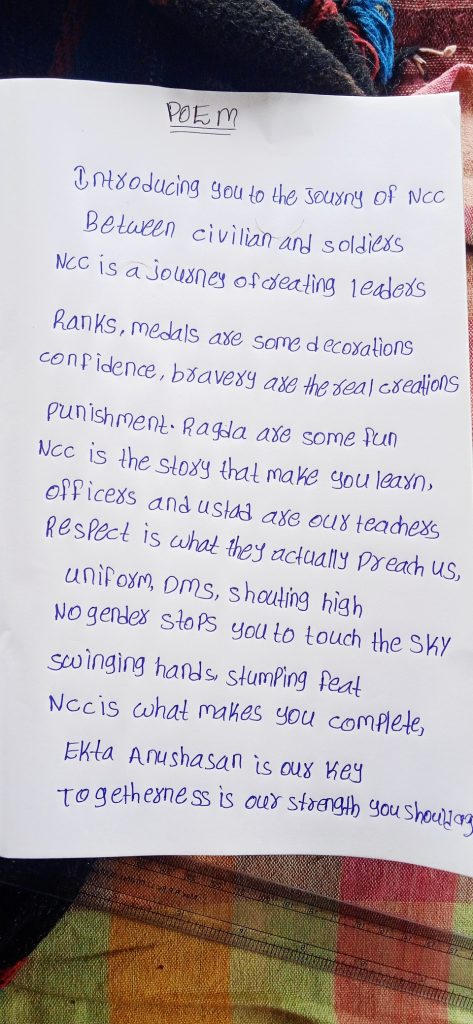 POEM
Introducing you to the Journy of NCC
Between civilian and soldiers
NCC is a journey of creating leaders
Ranks, medals are some decorations
confidence, bravery are the real creations
punishment. Ragda are some fun
NCC is the story that make you learn,
officers and ustad are our teachers
Respect is what they actually preach us,
uniform, DMS, shouting high
No gender stops you to touch the SKY
swinging hands, stumping feat
NCC is what makes you complete,
Ekta Anushasan is our key
Togetherness is our strength you should ag